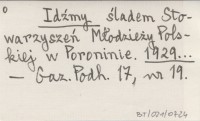 Idźmy śladem Sto-
warzyszeń Młodzieży Pols-
kiej w Poroninie. 1929...
— Gaz. Podh. 17, nr 19.
BT/021/0724